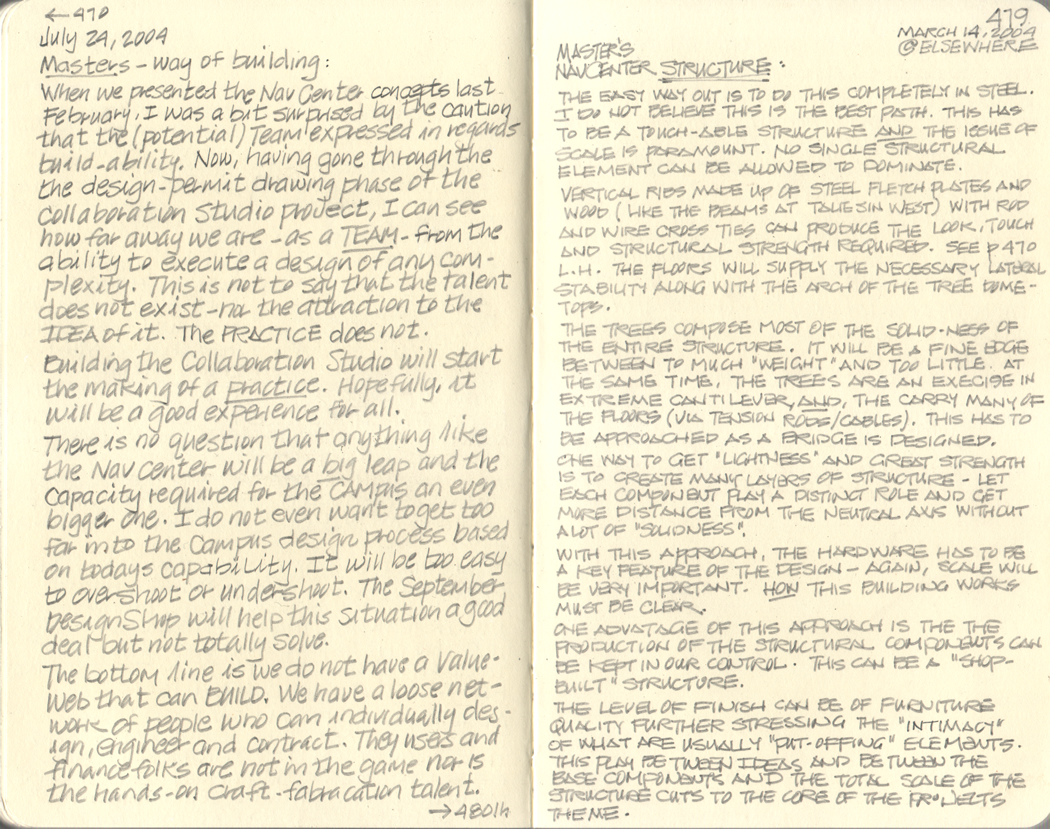 ←470
July 24, 2004
Masters - way of building:
When we presented the Nav Center concepts last
February, I was a bit surprised by the caution
that the (potential) Team expressed in regards
build-ability. Now, having gone through the
the design-permit drawing phase of the
Collaboration Studio project, I can see
how far away we are - as a TEAM - from the
ability to execute a design of any com-
plexity. This is not to say that the talent
does not exist - nor the attraction to the
IDEA of it. The PRACTICE does not.
Building the Collaboration Studio will start
the making of a practice. Hopefully, it
will be a good experience for all.
There is no question that anything like
the Nav center will be a big leap and the
Capacity required for the CAMPUS an even
bigger one. I do not even want to get too
far into the Campus design process based
on todays capability. It will be too easy
to overshoot or undershoot. The September
DesignShop will help this situation a good
deal but not totally solve.
The bottom line is we do not have a Value-
Web that can BUILD. We have a loose net-
work of people who can individually des-
ign, engineer and contract. They users and
finance folks are not in the game nor is
the hands-on craft-fabrication talent.
→480lh
479
MARCH 14, 2004
@ELSEWHERE
MASTER'S
NAVCENTER STRUCTURE:
THE EASY WAY OUT IS TO DO THIS COMPLETELY IN STEEL.
I DO NOT BELIEVE THIS IS THE BEST PATH. THIS HAS
TO BE A TOUCH-ABLE STRUCTURE AND THE ISSUE OF
SCALE IS PARAMOUNT. NO SINGLE STRUCTURAL
ELEMENT CAN BE ALLOWED TO DOMINATE.
VERTICAL RIBS MADE UP OF STEEL FLETCH PLATES AND
WOOD (LIKE THE BEAMS AT TALIESIN WEST) WITH ROD
AND WIRE CROSS TIES CAN PRODUCE THE LOOK, TOUCH
AND STRUCTURAL STRENGTH REQUIRED. SEE p470
L.H. THE FLOORS WILL SUPPLY THE NECESSARY LATERAL
STABILITY ALONG WITH THE ARCH OF THE TREE DOME-
TOPS.
THE TREES COMPOSE MOST OF THE SOLID-NESS OF
THE ENTIRE STRUCTURE. IT WILL BE A FINE EDGE
BETWEEN TO MUCH "WEIGHT" AND TOO LITTLE. AT
THE SAME TIME, THE TREES ARE AN EXECISE IN
EXTREME CANTILEVER, AND, THE CARRY MANY OF
THE FLOORS (VIA TENSION RODS/CABLES). THIS HAS TO
BE APPROACHED AS A BRIDGE IS DESIGNED.
ONE WAY TO GET "LIGHTNESS" AND GREAT STRENGTH
IS TO CREATE MANY LAYERS OF STRUCTURE - LET
EACH COMPONENT PLAY A DISTINCT ROLE AND GET
MORE DISTANCE FROM THE NEUTICAL AXIS WITHOUT
A LOT OF "SOLIDNESS".
WITH THIS APPROACH, THE HARDWARE HAS TO BE
A KEY FEATURE OF THE DESIGN - AGAIN, SCALE WILL
BE VERY IMPORTANT. HOW THIS BUILDING WORKS
MUST BE CLEAR.
ONE ADVATAGE OF THIS APPROACH IS THE THE
PRODUCTION OF THE STRUCTURAL COMPONENTS CAN
BE KEPT IN OUR CONTROL. THIS CAN BE A "SHOP-
BUILT" STRUCTURE.
THE LEVEL OF FINISH CAN BE OF FURNITURE
QUALITY FURTHER STRESSING THE "INTIMACY"
OF WHAT ARE USUALLY "PUT-OFFING" ELEMENTS.
THIS PLAY BETWEEN IDEAS AND BETWEEN THE
BASE COMPONENTS AND THE TOTAL SCALE OF THE
STRUCTURE CUTS TO THE CORE OF THE PROJECTS
THEME.